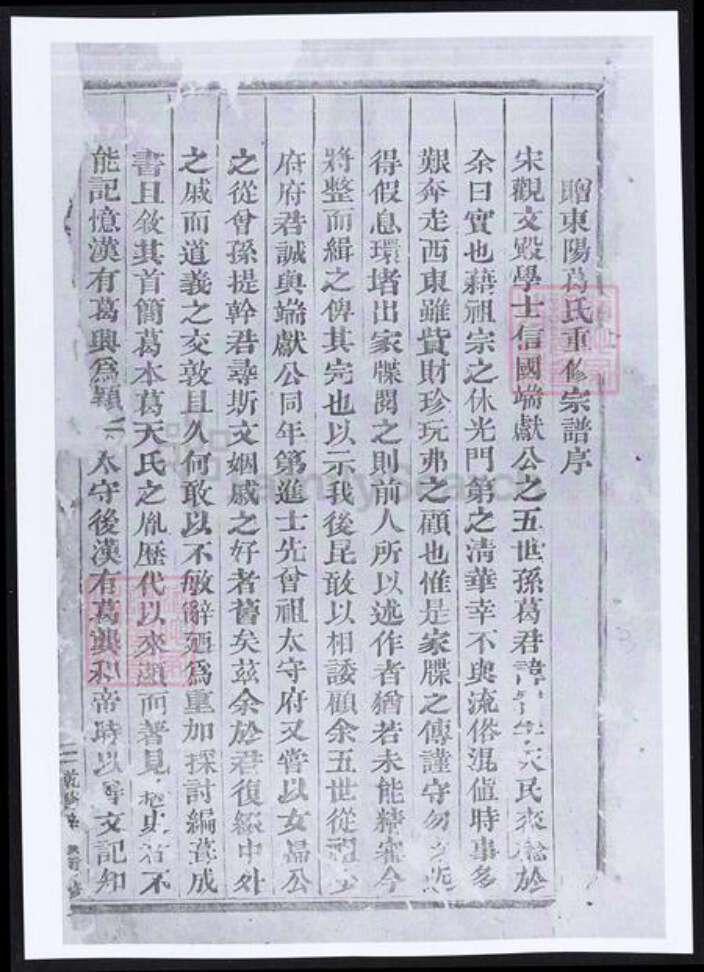 贈東陽葛氏重修宗譜序
宋觀文殿學士信國端獻公之五世孫葛君諱 天民來 於
余曰實也藉祖宗之休光門第之清華幸不與流俗混値時事多
艱奔走西東雖貲財珍玩弗之顧也惟是家牒之傳謹守勿
得假息環堵出家牒閱之則前人所以述作者猶若未能精審今
將整而緝之俾其完也以示我後昆敢以相諉顧余五世從祖
府府君誠與端獻公同年第進士先曾祖太守府又嘗以女歸公
之從曾孫提幹君尋斯文姻戚之好者舊矣茲余於君復締中外
之戚而道義之交敦且久何敢以不敏辭廼爲重加探討編葺成
書且敘其首簡葛本葛天氏之胤歷代以來顯而著見 史 不
能記憶漢有葛興爲潁 太守後漢有葛龔和帝時以善文記知